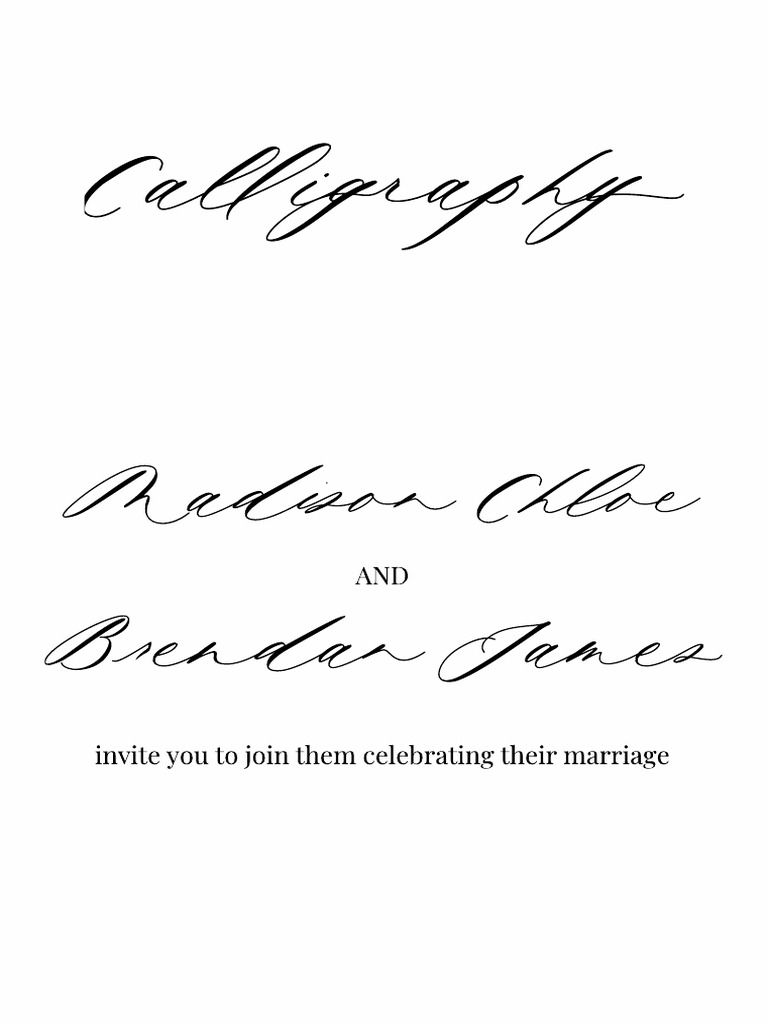 Calligraphy
Madison Chloe
AND
Brendan James
invite you to join them celebrating their marriage